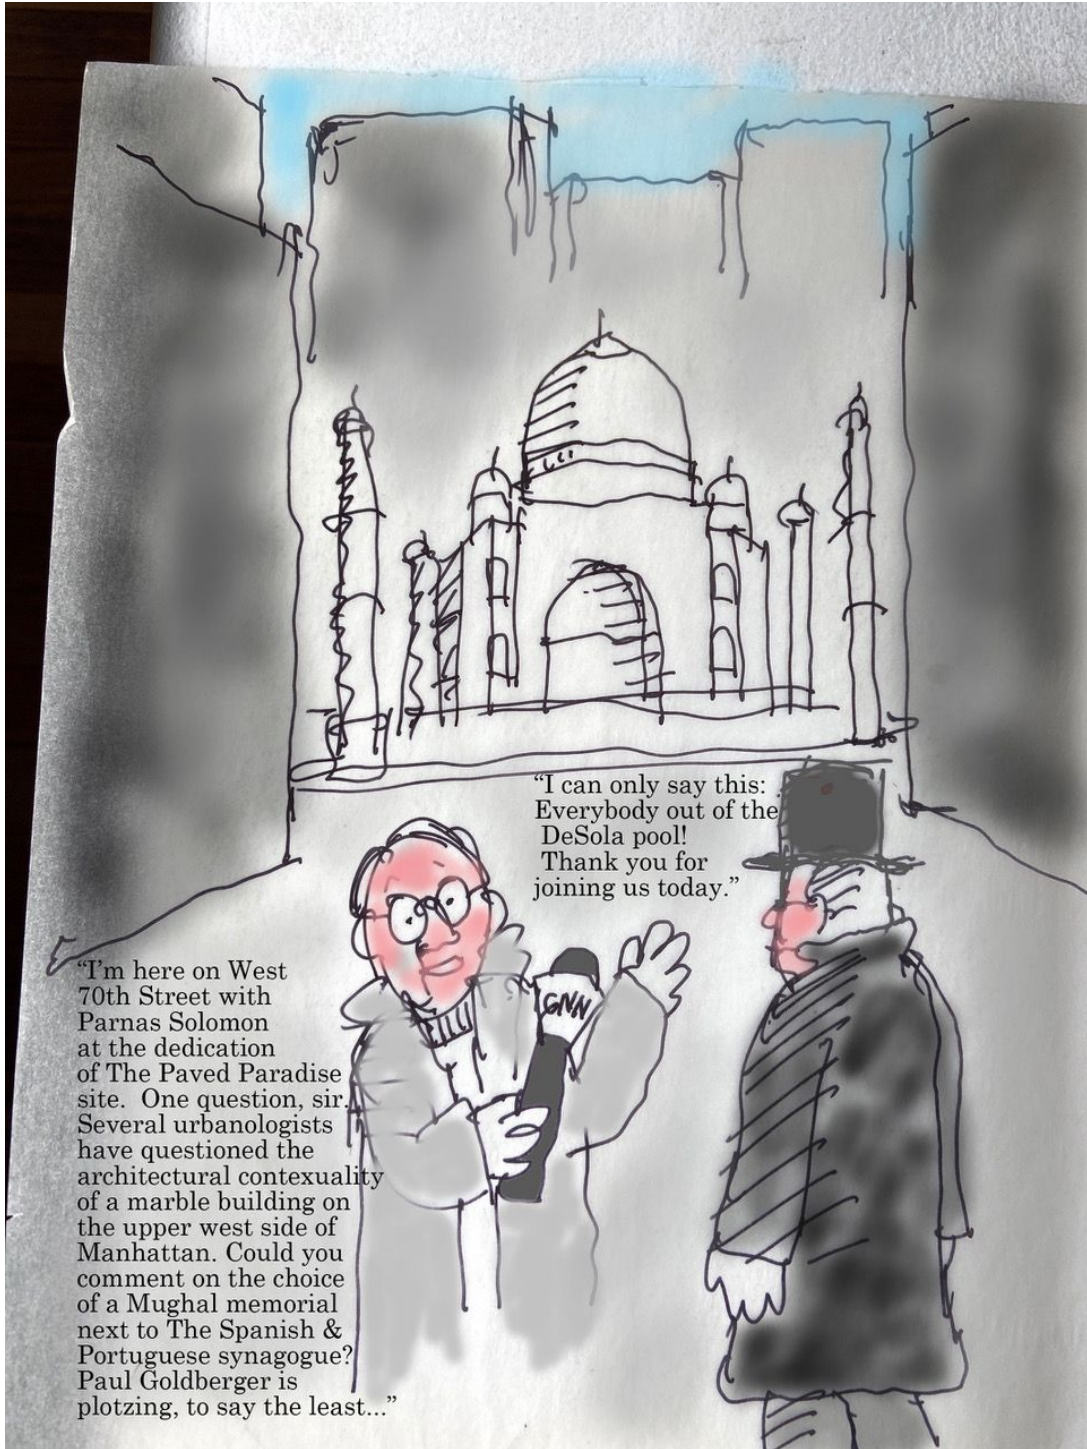 “I can only say this:
Everybody out of the
DeSola pool!
Thank you for
joining us today.”
GNN
“I’m here on West
70th Street with
Parnas Solomon
at the dedication
of The Paved Paradise
site. One question, sir.
Several urbanologists
have questioned the
architectural contexuality
of a marble building on
the upper west side of
Manhattan. Could you
comment on the choice
of a Mughal memorial
next to The Spanish &
Portuguese synagogue?
Paul Goldberger is
plotzing, to say the least...”